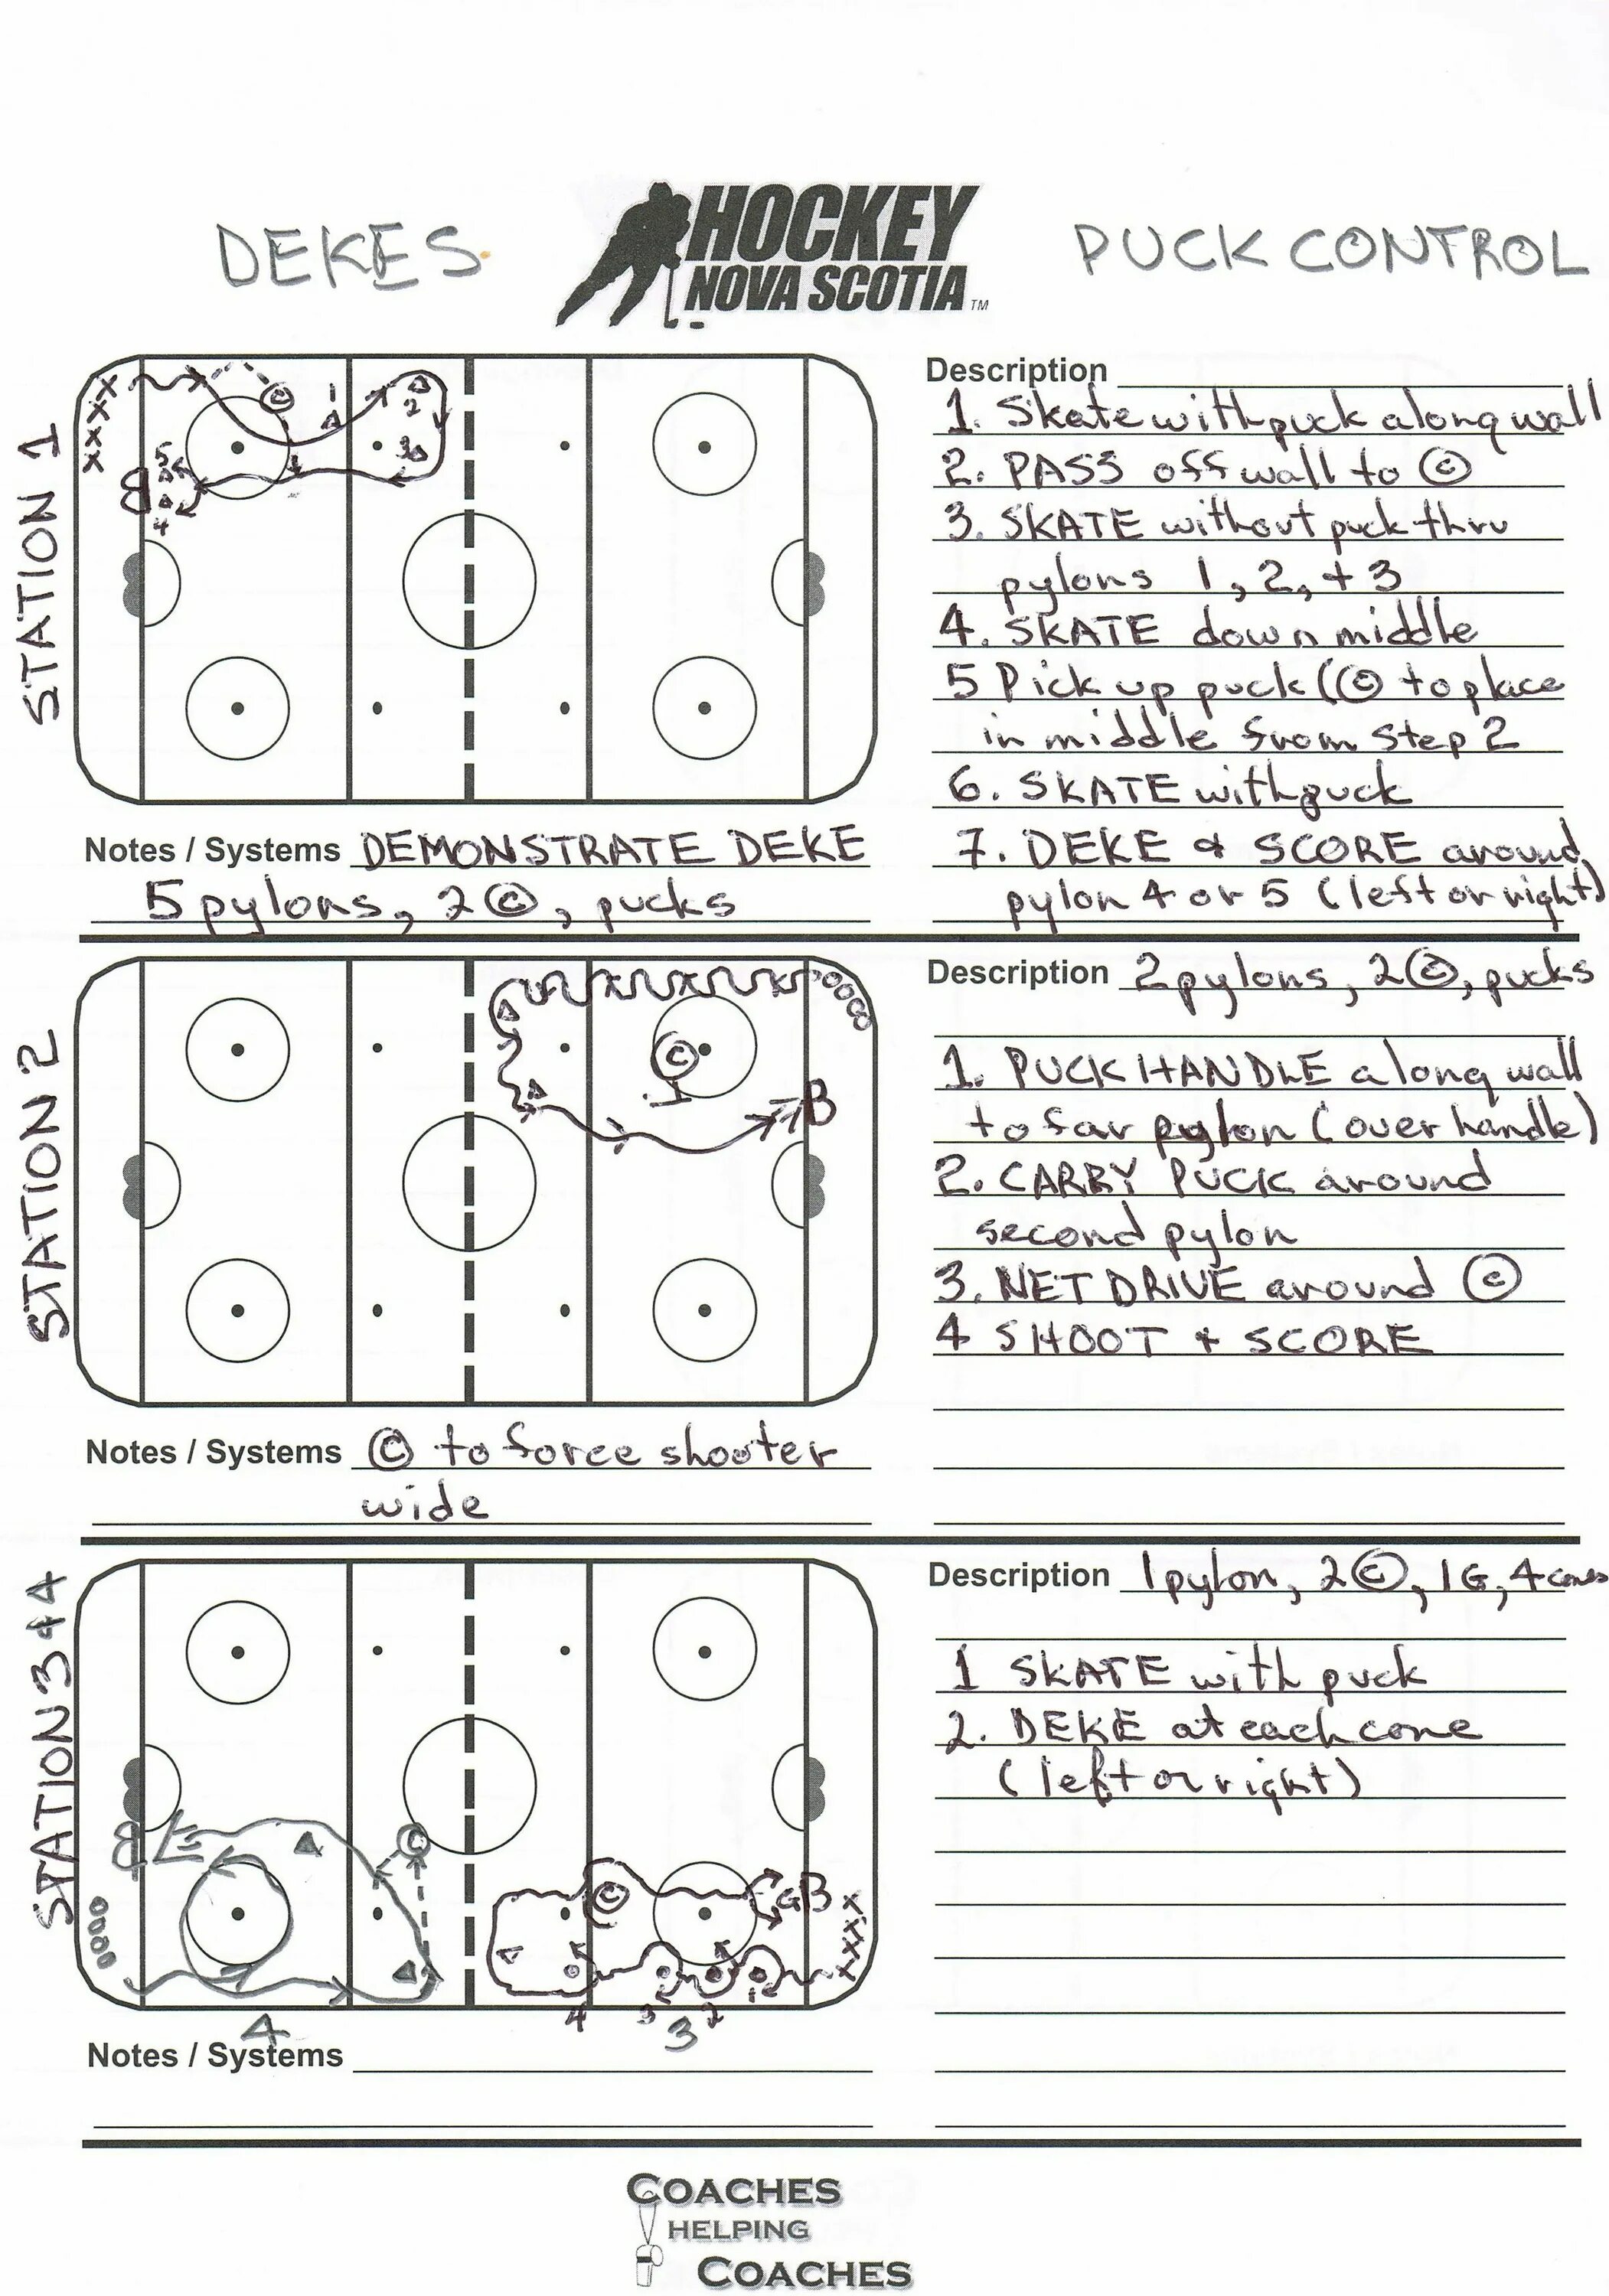 DEKES
HOCKEY
NOVA SCOTIA TM
PUCK CONTROL
STATION 1
X X X X X
©
1
2
3
5
4
Description
1. Skate with puck along wall
2. PASS off wall to ©
3. SKATE without puck thru
pylons 1, 2, + 3
4. SKATE down middle
5 Pick up puck (© to place
in middle from Step 2
6. SKATE with puck
7. DEKE & SCORE around
pylon 4 or 5 (left or right)
Notes / Systems DEMONSTRATE DEKE
5 pylons, 2 ©, pucks
STATION 2
©
Description 2 pylons, 2 ©, pucks
1. PUCK HANDLE along wall
to far pylon (over handle)
2. CARRY PUCK around
second pylon
3. NET DRIVE around ©
4 SHOOT + SCORE
Notes / Systems © to force shooter
wide
STATION 3 + 4
©
©
G
X X X X
4
3
2
1
4
3
Description 1 pylon, 2 ©, 1G, 4 cones
1 SKATE with puck
2. DEKE at each cone
(left or right)
Notes / Systems
COACHES
HELPING
COACHES